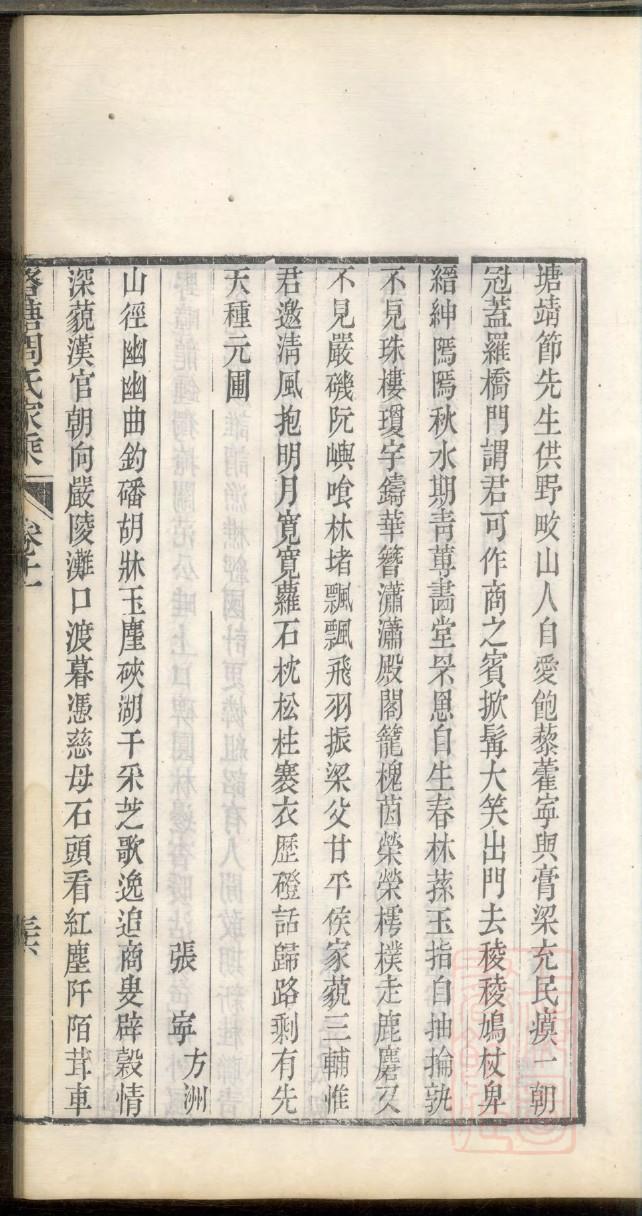 塘靖節先生供野畋山人自愛飽藜藿寧與膏梁充民瘼一朝
冠蓋羅橋門謂君可作商之賓掀髯大笑出門去稜稜鳩杖卑
縉紳隲隲秋水期青蓴晝堂罘恩自生春林蓀玉指自抽掄孰
不見珠樓瓊宇鑄華簪瀟瀟殿閣籠槐茵榮榮樗樸走鹿麏又
不見嚴磯阮嶼喰林堵飄飄飛羽振梁父甘平侯家藐三輔惟
君邀清風抱明月寬寬蘿石枕松杜褰衣歷磴話歸路剩有先
天種元圃
張寧方洲
山徑幽幽曲釣磻胡牀玉麈硤湖干采芝歌逸追商叟辟穀情
深藐漢官朝向嚴陵灘口渡暮憑慈母石頭看紅塵阡陌茸車
周氏家乘
卷十一